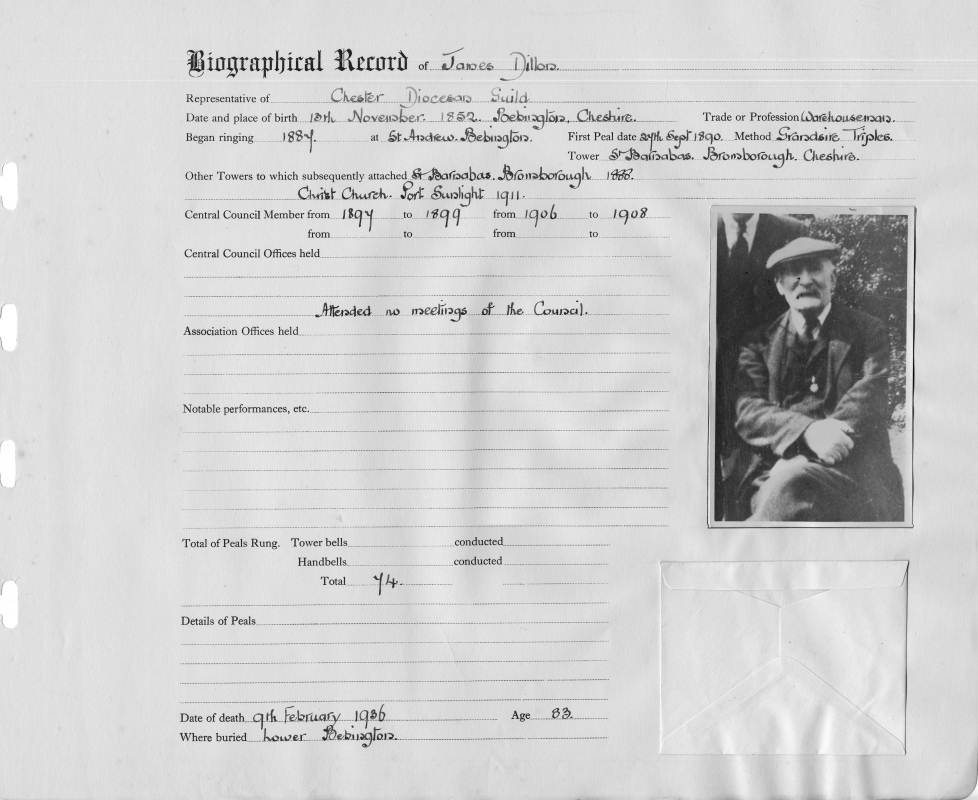 Biographical Record of James Dillon.
Representative of Chester Diocesan Guild
Date and place of birth 13th November. 1852. Bebington, Cheshire. Trade or Profession Warehouseman.
Began ringing 1887. at St. Andrew. Bebington. First Peal date 27th Sept 1890. Method Grandsire Triples.
Tower St Barnabas. Bromborough. Cheshire.
Other Towers to which subsequently attached St Barnabas. Bromborough 1888.
Christ Church. Port Sunlight 1911.
Central Council Member from 1897 to 1899 from 1906 to 1908
from to from to
Central Council Offices held
Attended no meetings of the Council.
Association Offices held
Notable performances, etc.
Total of Peals Rung. Tower bells conducted
Handbells conducted
Total 74.
Details of Peals
Date of death 9th February 1936 Age 83.
Where buried Lower Bebington.